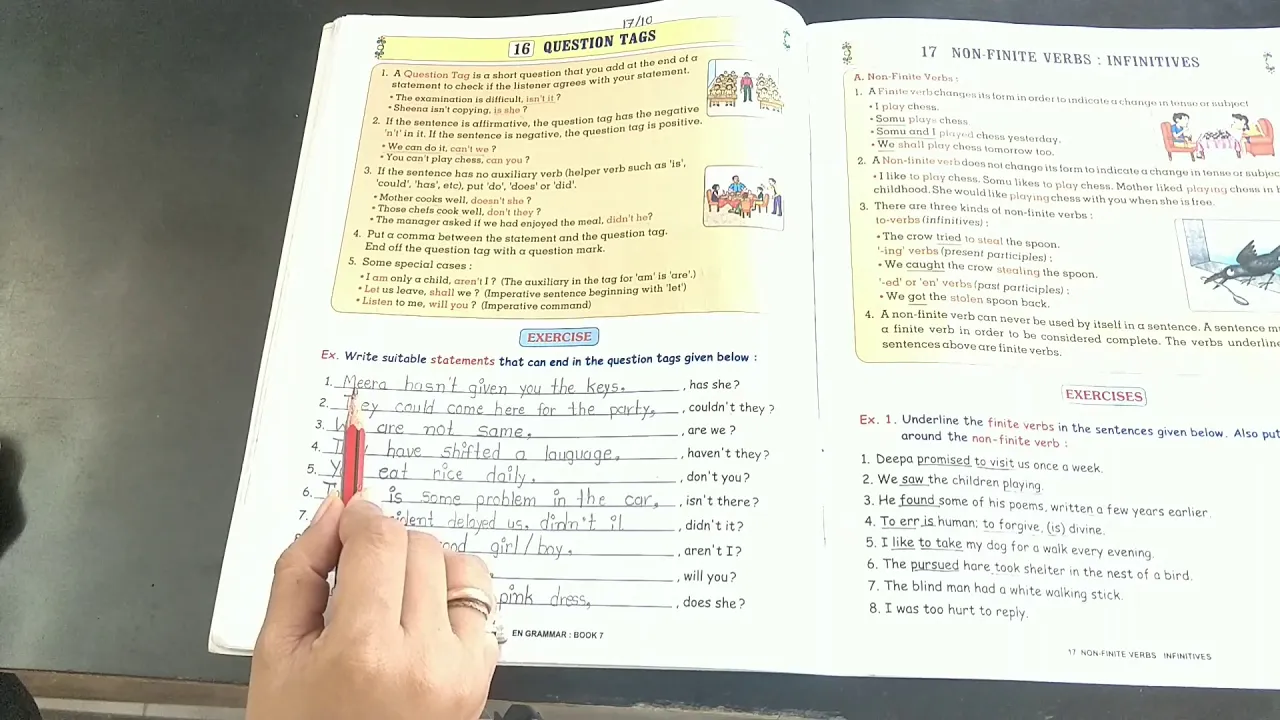 17/10
16 QUESTION TAGS
1. A Question Tag is a short question that you add at the end of a
statement to check if the listener agrees with your statement.
• The examination is difficult, isn't it ?
• Sheena isn't copying, is she ?
2. If the sentence is affirmative, the question tag has the negative
'n't' in it. If the sentence is negative, the question tag is positive.
• We can do it, can't we ?
• You can't play chess, can you ?
3. If the sentence has no auxiliary verb (helper verb such as 'is',
'could', 'has', etc), put 'do', 'does' or 'did'.
• Mother cooks well, doesn't she ?
• Those chefs cook well, don't they ?
• The manager asked if we had enjoyed the meal, didn't he?
4. Put a comma between the statement and the question tag.
End off the question tag with a question mark.
5. Some special cases :
• I am only a child, aren't I ? (The auxiliary in the tag for 'am' is 'are'.)
• Let us leave, shall we ? (Imperative sentence beginning with 'let')
• Listen to me, will you ? (Imperative command)
EXERCISE
Ex. Write suitable statements that can end in the question tags given below :
1. Meera hasn't given you the keys. , has she?
2. could come here for the party, , couldn't they ?
3. are not same. , are we ?
4. have shifted a lauguage, , haven't they?
5. eat rice daily. , don't you?
6. is some problem in the car, , isn't there?
7. delayed us, didn't it , didn't it?
girl/boy. , aren't I?
, will you?
pink dress, , does she?
EN GRAMMAR : BOOK 7
17 NON-FINITE VERBS : INFINITIVES
A. Non-Finite Verbs :
1. A Finite verb changes its form in order to indicate a change in tense or subject
• I play chess.
• Somu plays chess.
• Somu and I played chess yesterday.
• We shall play chess tomorrow too.
2. A Non-finite verb does not change its form to indicate a change in tense or
• I like to play chess. Somu likes to play chess. Mother liked playing chess in
childhood. She would like playing chess with you when she is free.
3. There are three kinds of non-finite verbs :
to-verbs (infinitives) :
• The crow tried to steal the spoon.
'-ing' verbs (present participles) :
• We caught the crow stealing the spoon.
'-ed' or 'en' verbs (past participles) :
• We got the stolen spoon back.
4. A non-finite verb can never be used by itself in a sentence. A sentence
a finite verb in order to be considered complete. The verbs
sentences above are finite verbs.
EXERCISES
Ex. 1. Underline the finite verbs in the sentences given below. Also put
around the non-finite verb :
1. Deepa promised to visit us once a week.
2. We saw the children playing.
3. He found some of his poems, written a few years earlier.
4. To err is human; to forgive, (is) divine.
5. I like to take my dog for a walk every evening.
6. The pursued hare took shelter in the nest of a bird.
7. The blind man had a white walking stick.
8. I was too hurt to reply.
17 NON-FINITE VERBS INFINITIVES